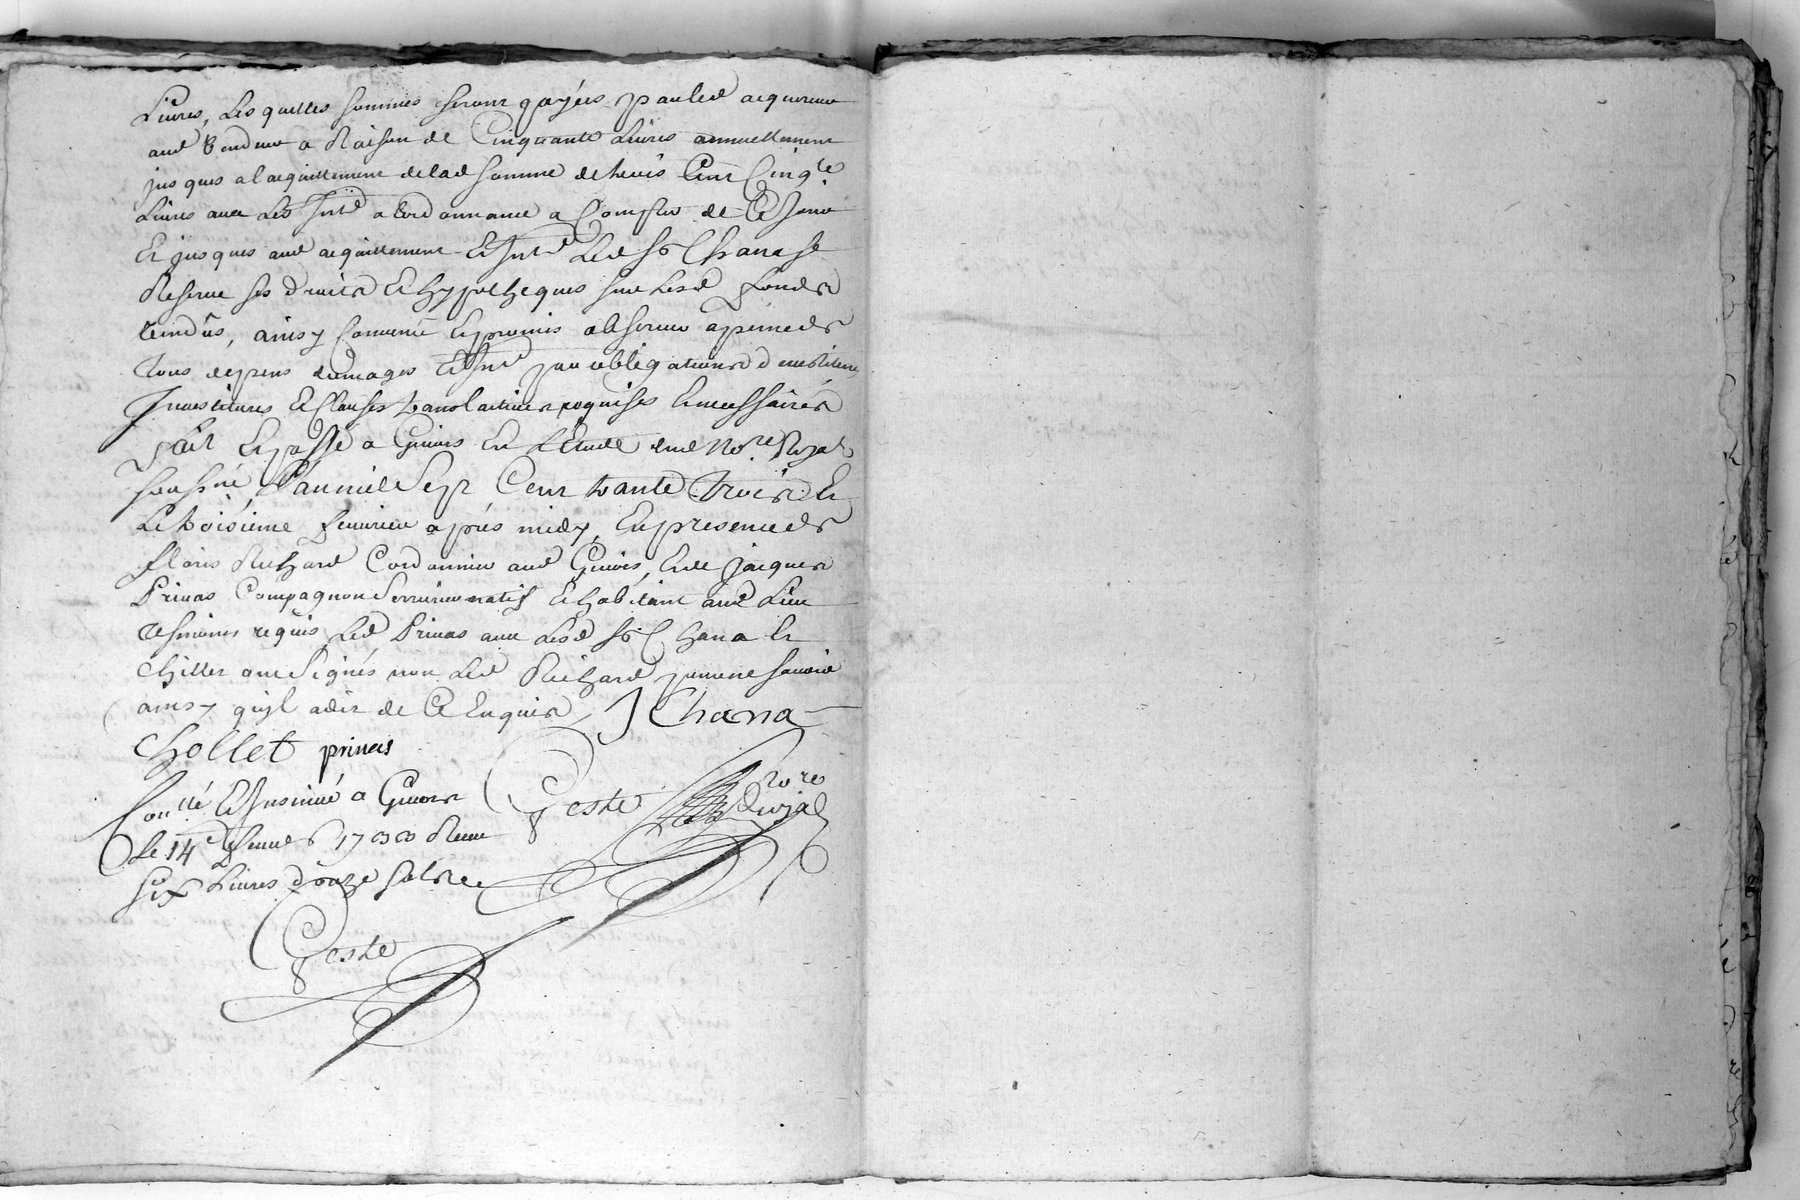 Livres, Lesquelles sommes seront payées par led acquereur
aud Vendeur a Raison de Cinquante Livres annuellement
jusques a l'acquittement de lad somme de trois Cent Cinqte
Livres avec Les Intts a l'ordonnance a Compter de Ce jour
Et jusques aud acquittement Led Sr Chana se
Reserve ses droits Et hypotheques sur lesd fonds
vendus, ainsy Convenu Et promis observer a peine de
tous depens domages Et Intts par obligations
Investitures Et Clauses translatives requises Et necessaires
fait Et passé a Givors En L'Etude dud Nore Royal
soussné L'an mil Sept Cent trante trois Et
Le troisieme feuvrier après midy, En presence de
floris Richard Cordonnier aud Givors, Et de jacques
Privas Compagnon Serrurier natif Et habitant aud Lieu
tesmoins requis Led Privas avec Lesd Sr Chana Et
Chollet ont Signés non Led Richard pour ne savoir
ainsy qu'jl a dit de Ce Enquis, J Chana
Chollet privas
Conllé Et Insinué a Givors
Geste Nore Royal
Le 14e feuvr 1733 Receu
Six Livres douze sols
Geste